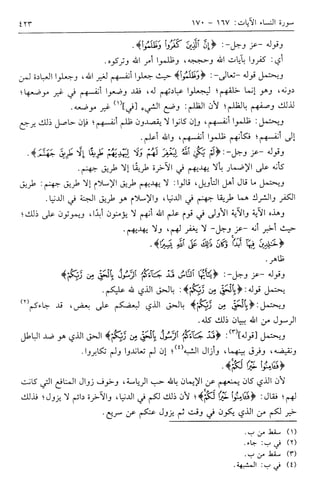 سورة النساء الآيات: ١٦٧ - ١٧٠ ٤٢٣
وقوله -عز وجل-: ﴿إِنَّ ٱلَّذِينَ كَفَرُوا۟ وَظَلَمُوا۟﴾.
أي: كفروا بآيات الله وحججه، وظلموا أمر الله وتركوه.
ويحتمل قوله -تعالى-: ﴿وَظَلَمُوا۟﴾ حيث جعلوا أنفسهم لغير الله، وجعلوا العبادة لمن
دونه، وهو إنما خلقهم؛ ليجعلوا عبادتهم له، فقد وضعوا أنفسهم في غير موضعها؛
لذلك وصفهم بالظلم؛ لأن الظلم: وضع الشيء [في](١) غير موضعه.
ويحتمل: ظلموا أنفسهم، وإن كانوا لا يقصدون ظلم أنفسهم؛ فإن حاصل ذلك يرجع
إلى أنفسهم؛ فكأنهم ظلموا أنفسهم، والله أعلم.
وقوله -عز وجل-: ﴿لَمْ يَكُنِ ٱللَّهُ لِيَغْفِرَ لَهُمْ وَلَا لِيَهْدِيَهُمْ طَرِيقًا إِلَّا طَرِيقَ جَهَنَّمَ﴾.
كأنه على الإضمار بألا يهديهم في الآخرة طريقًا إلا طريق جهنم.
ويحتمل ما قال أهل التأويل، قالوا: لا يهديهم طريق الإسلام إلا طريق جهنم: طريق
الكفر والشرك هما طريقا جهنم في الدنيا، والإسلام هو طريق الجنة في الدنيا.
وهذه الآية والآية الأولى في قوم علم الله أنهم لا يؤمنون أبدًا، ويموتون على ذلك؛
حيث أخبر أنه -عز وجل- لا يغفر لهم، ولا يهديهم.
﴿خَٰلِدِينَ فِيهَآ أَبَدًا وَكَانَ ذَٰلِكَ عَلَى ٱللَّهِ يَسِيرًا﴾.
ظاهر.
وقوله -عز وجل-: ﴿يَٰٓأَيُّهَا ٱلنَّاسُ قَدْ جَآءَكُمُ ٱلرَّسُولُ بِٱلْحَقِّ مِن رَّبِّكُمْ﴾
يحتمل قوله: ﴿بِٱلْحَقِّ مِن رَّبِّكُمْ﴾: بالحق الذي لله عليكم.
ويحتمل: ﴿بِٱلْحَقِّ مِن رَّبِّكُمْ﴾ بالحق الذي لبعضكم على بعض، قد جاءكم(٢)
الرسول من الله ببيان ذلك كله.
ويحتمل [قوله](٣): ﴿قَدْ جَآءَكُمُ ٱلرَّسُولُ بِٱلْحَقِّ مِن رَّبِّكُمْ﴾ الحق الذي هو ضد الباطل
ونقيضه، وفرق بينهما، وأزال الشبه(٤)؛ إن لم تعاندوا ولم تكابروا.
﴿فَـَٔامِنُوا۟ خَيْرًا لَّكُمْ﴾.
لأن الذي كان يمنعهم عن الإيمان بالله حب الرياسة، وخوف زوال المنافع التي كانت
لهم؛ فقال: ﴿فَـَٔامِنُوا۟ خَيْرًا لَّكُمْ﴾؛ لأن ذلك لكم في الدنيا، والآخرة دائم لا يزول؛ فذلك
خير لكم من الذي يكون في وقت ثم يزول عنكم عن سريع.
(١) سقط من ب.
(٢) في ب: جاء.
(٣) سقط من ب.
(٤) في ب: المشبهة.